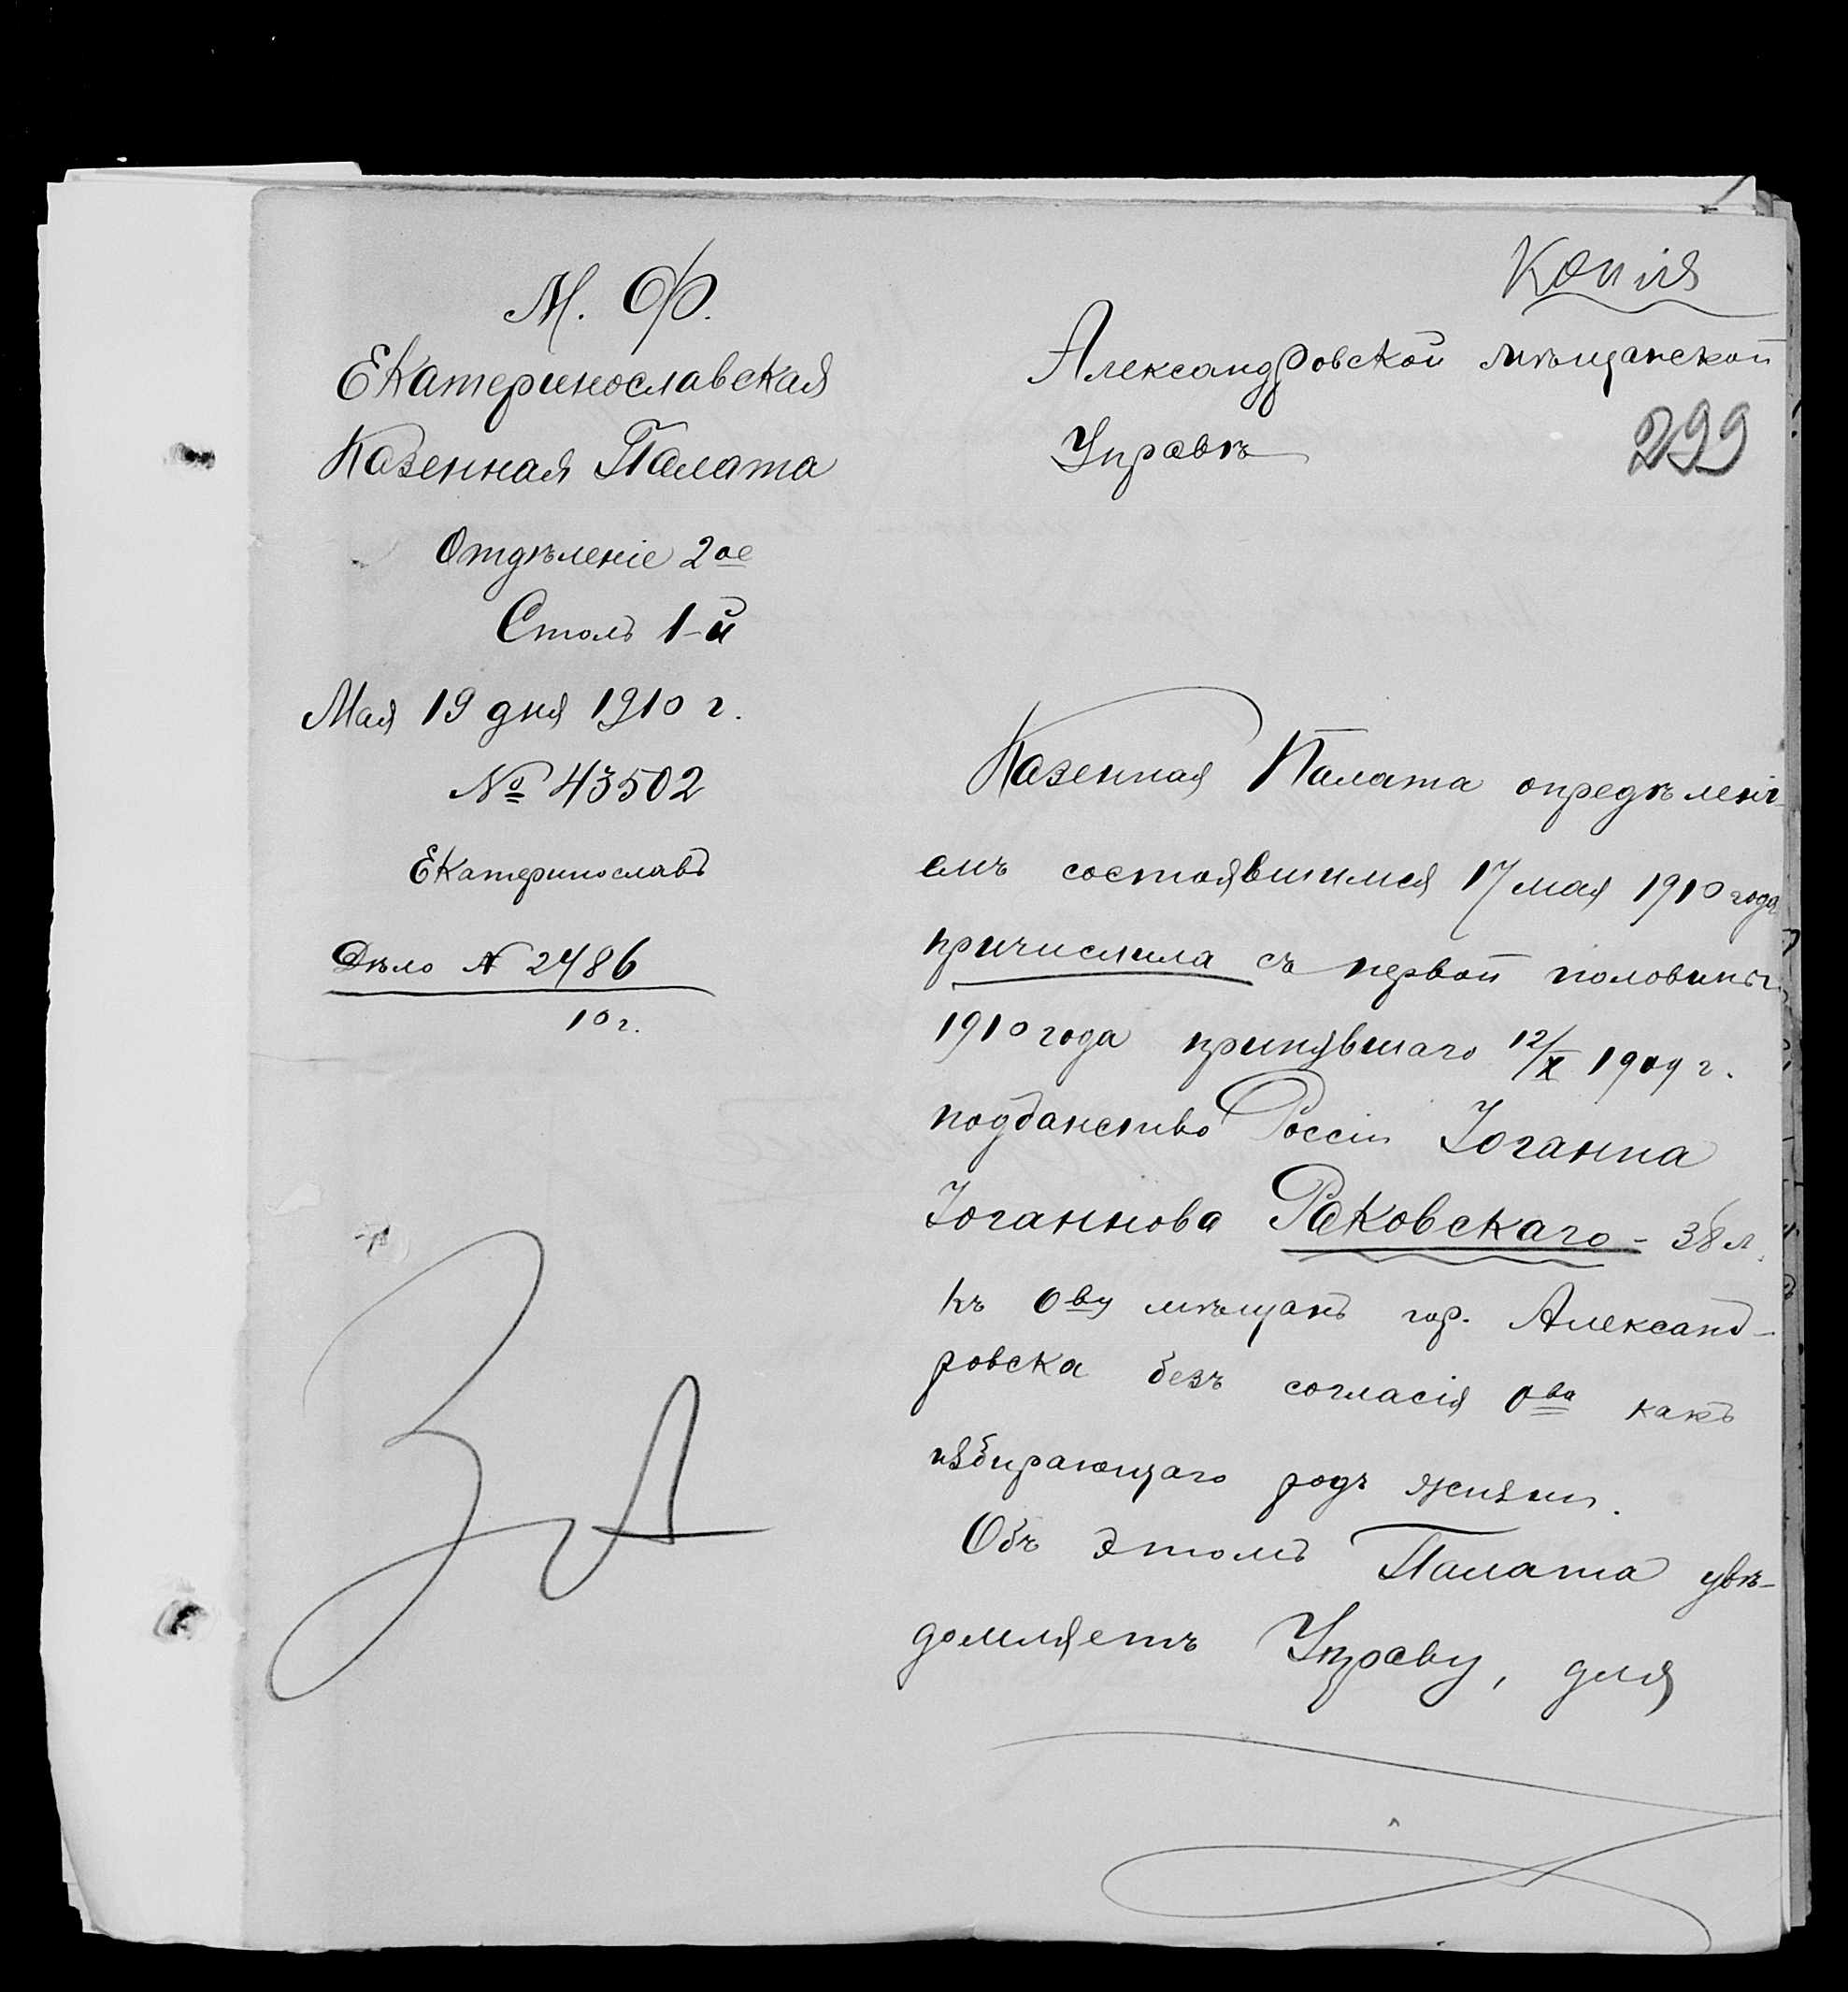 М. Ф.
Екатеринославская
Казенная Палата
Отдѣленіе 2ое
Столъ 1-й
Мая 19 дня 1910 г.
№ 43502
Екатеринославъ
Дѣло № 2486
10 г.
Копія
Александровской мѣщанской
Управѣ
299
Казенная Палата опредѣлені-
емъ состоявшимся 17 мая 1910 года
причислила съ первой половины
1910 года принявшаго 12/X 1909 г.
подданство Россіи Іоганна
Іоганнова Раковскаго - 38 л.
къ Ову мѣщанъ гор. Александ-
ровска безъ согласія Ова какъ
избирающаго родъ жизни.
Объ этомъ Палата увѣ-
домляетъ Управу, для